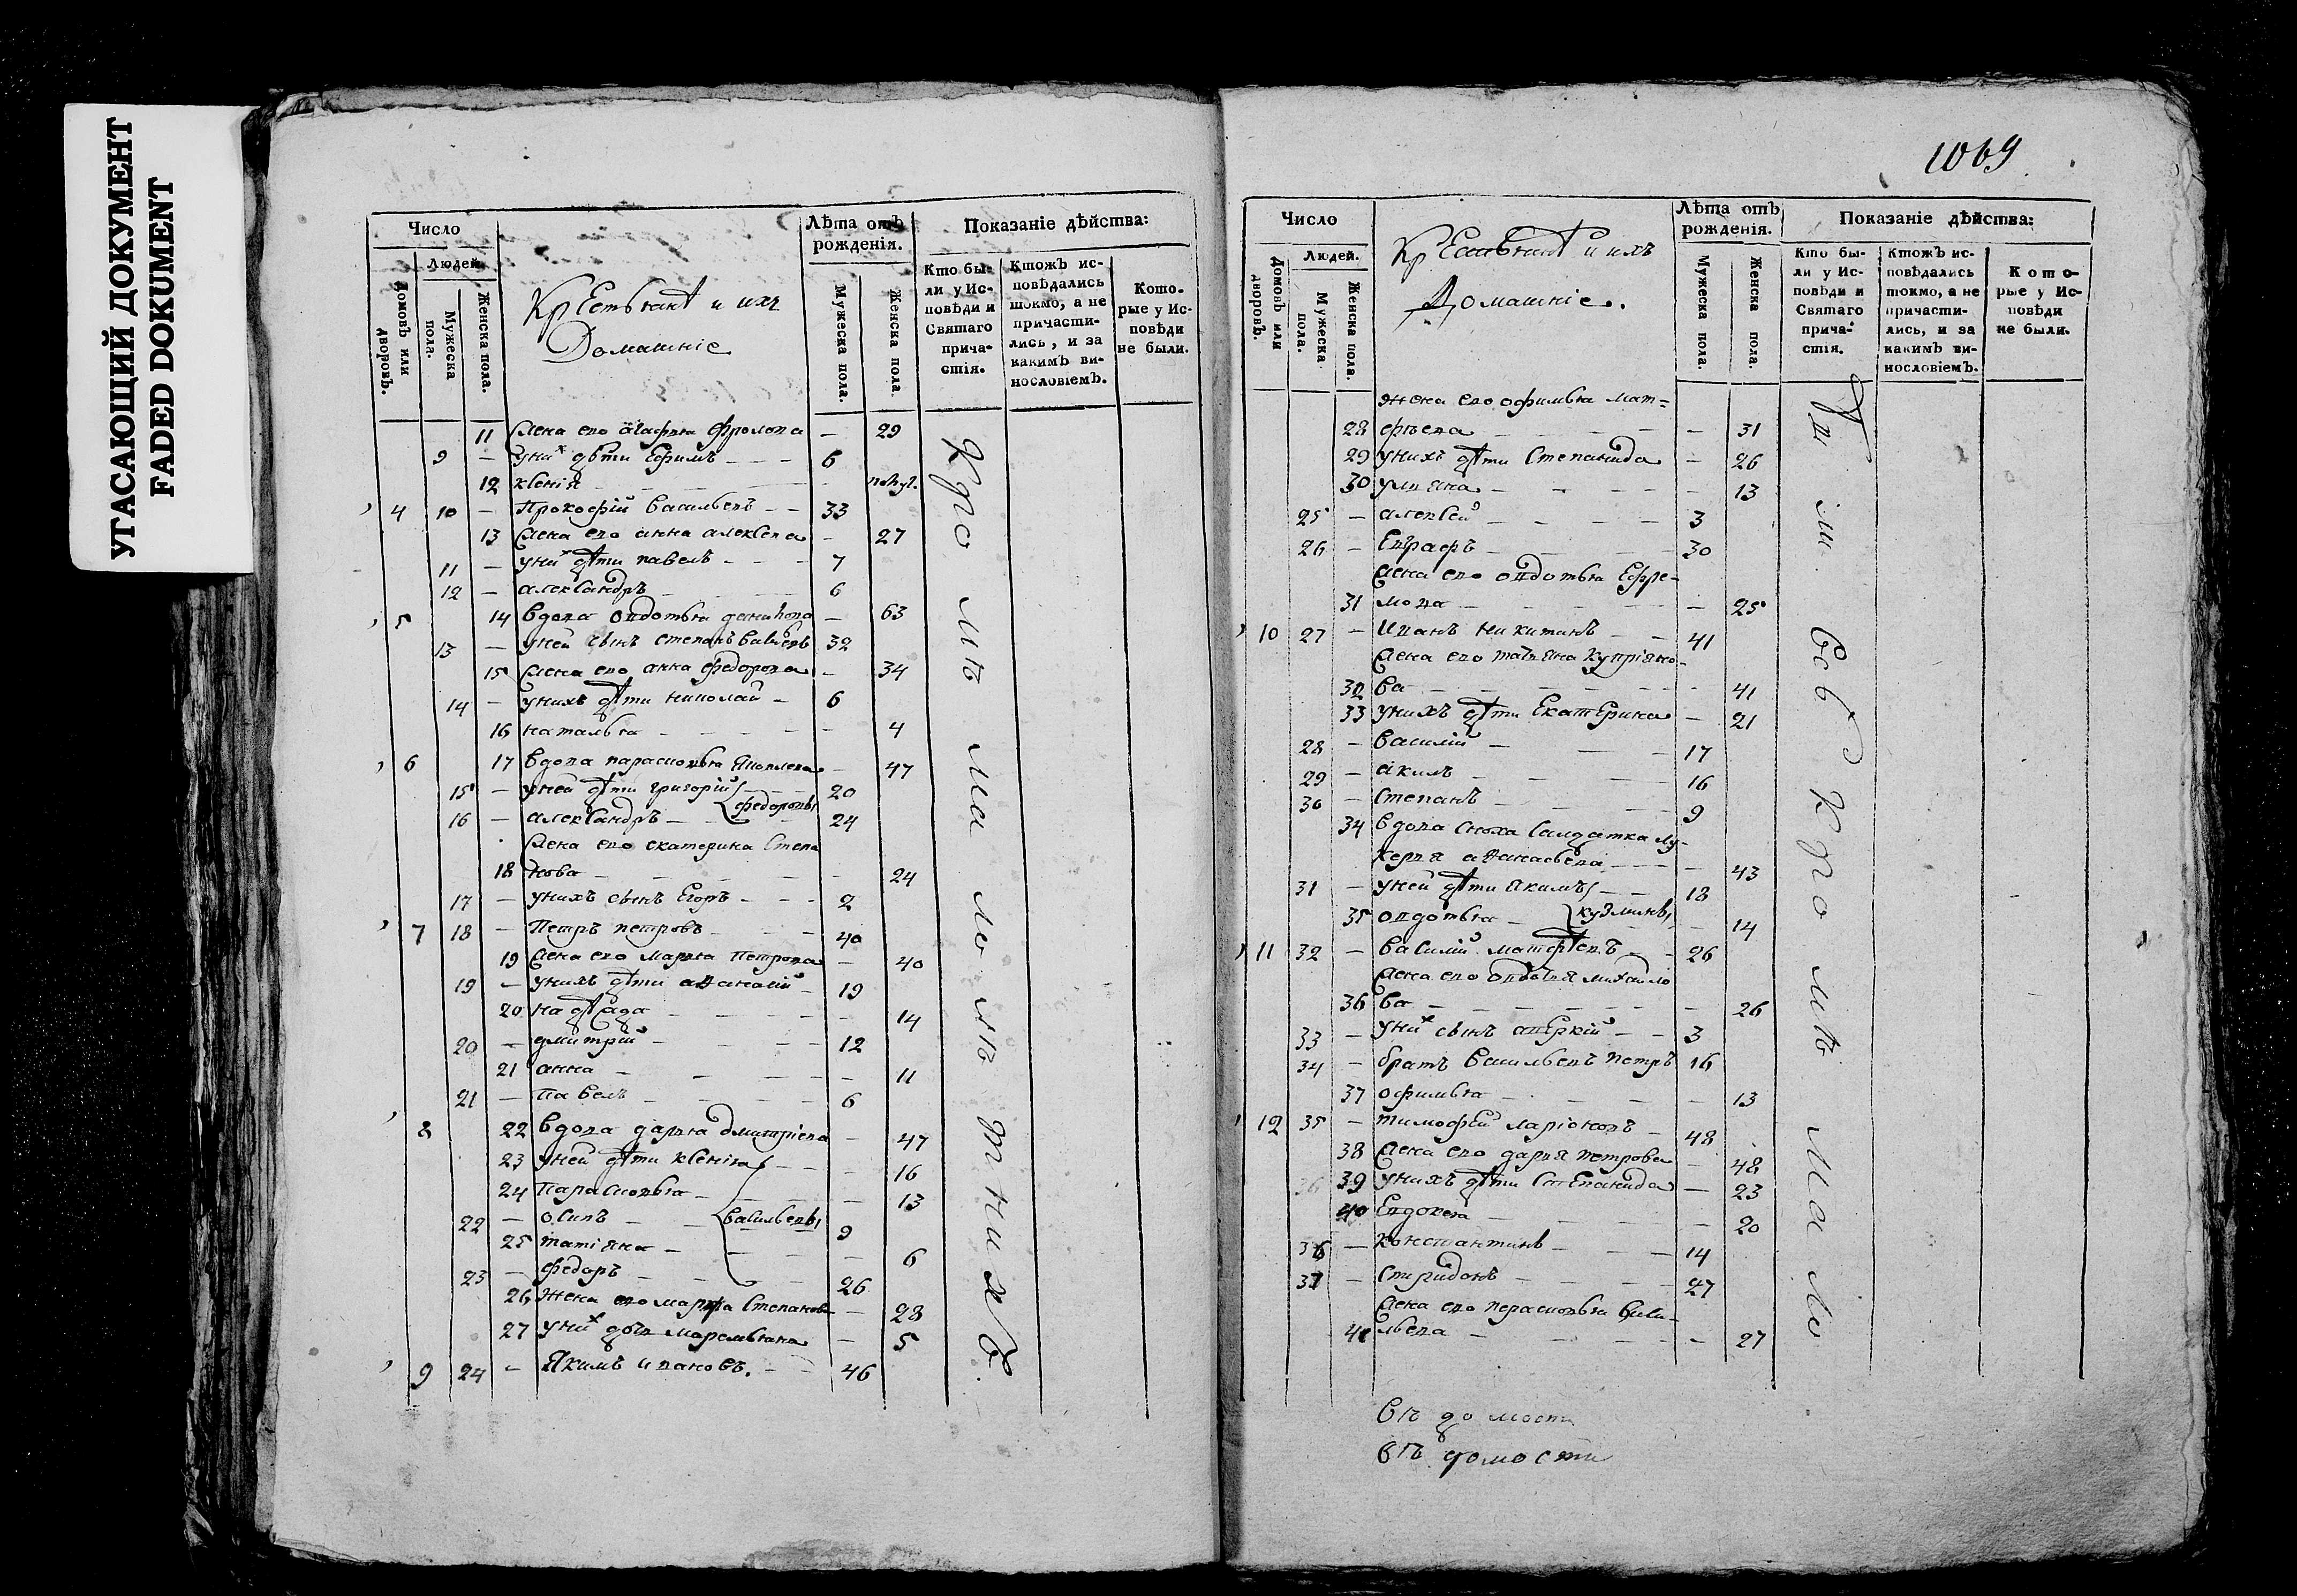 УГАСАЮЩИЙ ДОКУМЕНТ
FADED DOKUMENT
Число
Людей.
Домовъ или дворовъ.
Мужеска пола.
Женска пола.
Крестьянѣ и ихъ
Домашніе
Лѣта отъ рожденія.
Мужеска пола.
Женска пола.
Показаніе дѣйства:
Кто бы-
ли у Ис-
повѣди и
Святаго
прича-
стія.
Ктожъ ис-
повѣдались
токмо, а не
причасти-
лись, и за
какимъ ви-
нословіемъ.
Кото-
рые у Ис-
повѣди
не были.
11 жена его агафья фролова — 29
9 — у них дѣти Ефимъ — 6
12 ксенія — полуг.
4 10 — Прокофій васильевъ — 33
13 жена его анна алексева — 27
11 — у них дѣти павелъ — 7
12 — александръ — 6
5 14 вдова овдотья данилова — 63
13 — у ней сынъ степанъ васильевъ 32
15 жена его анна федорова — 34
14 — у нихъ дѣти николай — 6
16 наталья — 4
6 17 вдова парасковья Яковлева — 47
15 — у ней дѣти григорій — 20
федоровы
16 — александръ — 24
жена его екатерина Степа
18 нова — 24
17 — у нихъ сынъ Егоръ — 2
7 18 — Петръ петровъ — 40
19 жена его марья Петрова — 40
19 — у нихъ дѣти аѳанасій — 19
20 надѣжда — 14
20 — дмитрій — 12
21 анна — 11
21 — Павелъ — 6
8 22 вдова дарья дмитріева — 47
23 у ней дѣти ксенія — 16
24 Парасковья — 13
васильевы
22 — осипъ — 9
25 татіяна — 6
23 — федоръ — 26
26 жена его марфа Степанова — 28
27 у них дочь маремьяна — 5
9 24 — Якимъ ивановъ. — 46
1069
Число
Людей.
Домовъ или дворовъ.
Мужеска пола.
Женска пола.
Крестьянѣ и ихъ
Домашніе.
Лѣта отъ рожденія.
Мужеска пола.
Женска пола.
Показаніе дѣйства:
Кто бы-
ли у Ис-
повѣди и
Святаго
прича-
стія.
Ктожъ ис-
повѣдались
токмо, а не
причасти-
лись, и за
какимъ ви-
нословіемъ.
Кото-
рые у Ис-
повѣди
не были.
жена его офимья мат=
28 фѣева — 31
29 у нихъ дѣти Степанида — 26
30 ульяна — 13
25 — алексей — 3
26 — Евграфъ — 30
жена его овдотья Ефре-
31 мова — 25
10 27 — Иванъ никитинъ — 41
жена его татьяна купріяно-
32 ва — 41
33 у нихъ дѣти Екатерина — 21
28 — василій — 17
29 — акимъ — 16
30 — Степанъ — 9
34 вдова сноха салдатка лу-
керья аѳанасьева — 43
31 — у ней дѣти якимъ — 18
кузмины
35 овдотья — 14
11 32 — василий матфѣевъ — 26
жена его овдотья михайло
36 ва — 26
33 — у них сынъ аверкій — 3
34 — братъ васильевъ петръ 16
37 офимья — 13
12 35 — тимофей ларіоновъ — 48
38 жена его дарья петрова — 48
39 у нихъ дѣти Степанида — 23
40 Евдокея — 20
36 — константинъ — 14
37 — Спиридонъ — 27
жена его парасковья васи-
41 льева — 27
вѣдомости
вѣдомости